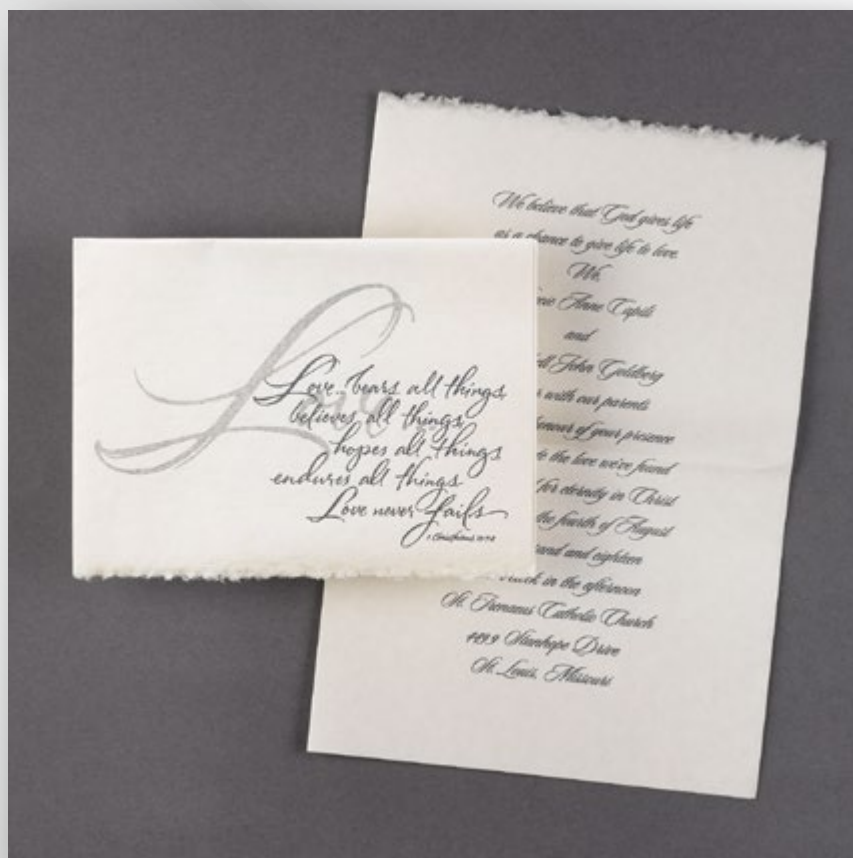 Love
Love... bears all things,
believes all things,
hopes all things
endures all things.
Love never fails
We believe that God gives life
as a chance to give life to love.
We,
Anne Capili
and
John Goldberg
with our parents
honour of your presence
to the love we've found
for eternity in Christ
the fourth of August
and eighteen
in the afternoon
St. Irenaeus Catholic Church
Stanhope Drive
St. Louis, Missouri